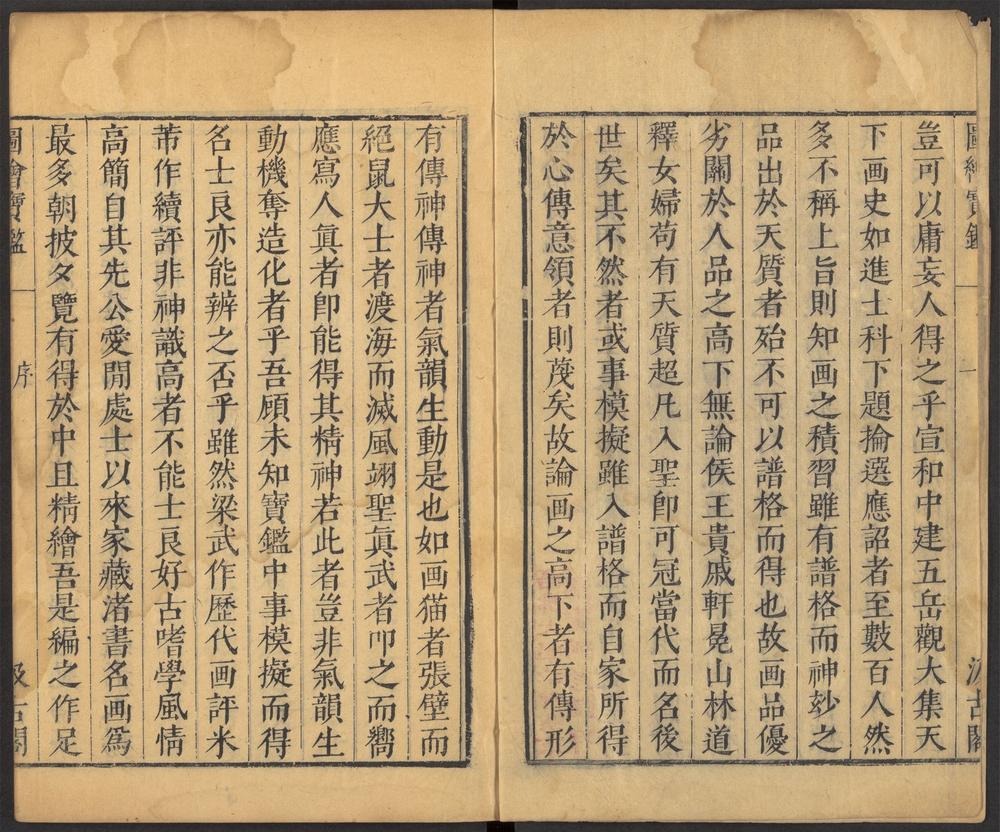 圖繪寶鑑
一
汲古閣
豈可以庸妄人得之乎宣和中建五岳觀大集天
下画史如進士科下題掄選應詔者至數百人然
多不稱上旨則知画之積習雖有譜格而神妙之
品出於天質者殆不可以譜格而得也故画品優
劣關於人品之高下無論侯王貴戚軒冕山林道
釋女婦苟有天質超凡入聖即可冠當代而名後
世矣其不然者或事模擬雖入譜格而自家所得
於心傳意領者則蔑矣故論画之高下者有傳形
有傳神傳神者氣韻生動是也如画猫者張壁而
絕鼠大士者渡海而滅風翊聖真武者叩之而嚮
應寫人真者即能得其精神若此者豈非氣韻生
動機奪造化者乎吾顧未知寶鑑中事模擬而得
名士良亦能辨之否乎雖然梁武作歷代画評米
芾作續評非神識高者不能士良好古嗜學風情
高簡自其先公愛閒處士以來家藏渚書名画為
最多朝披夕覽有得於中且精繪吾是編之作足
圖會寶監
序
汲古閣